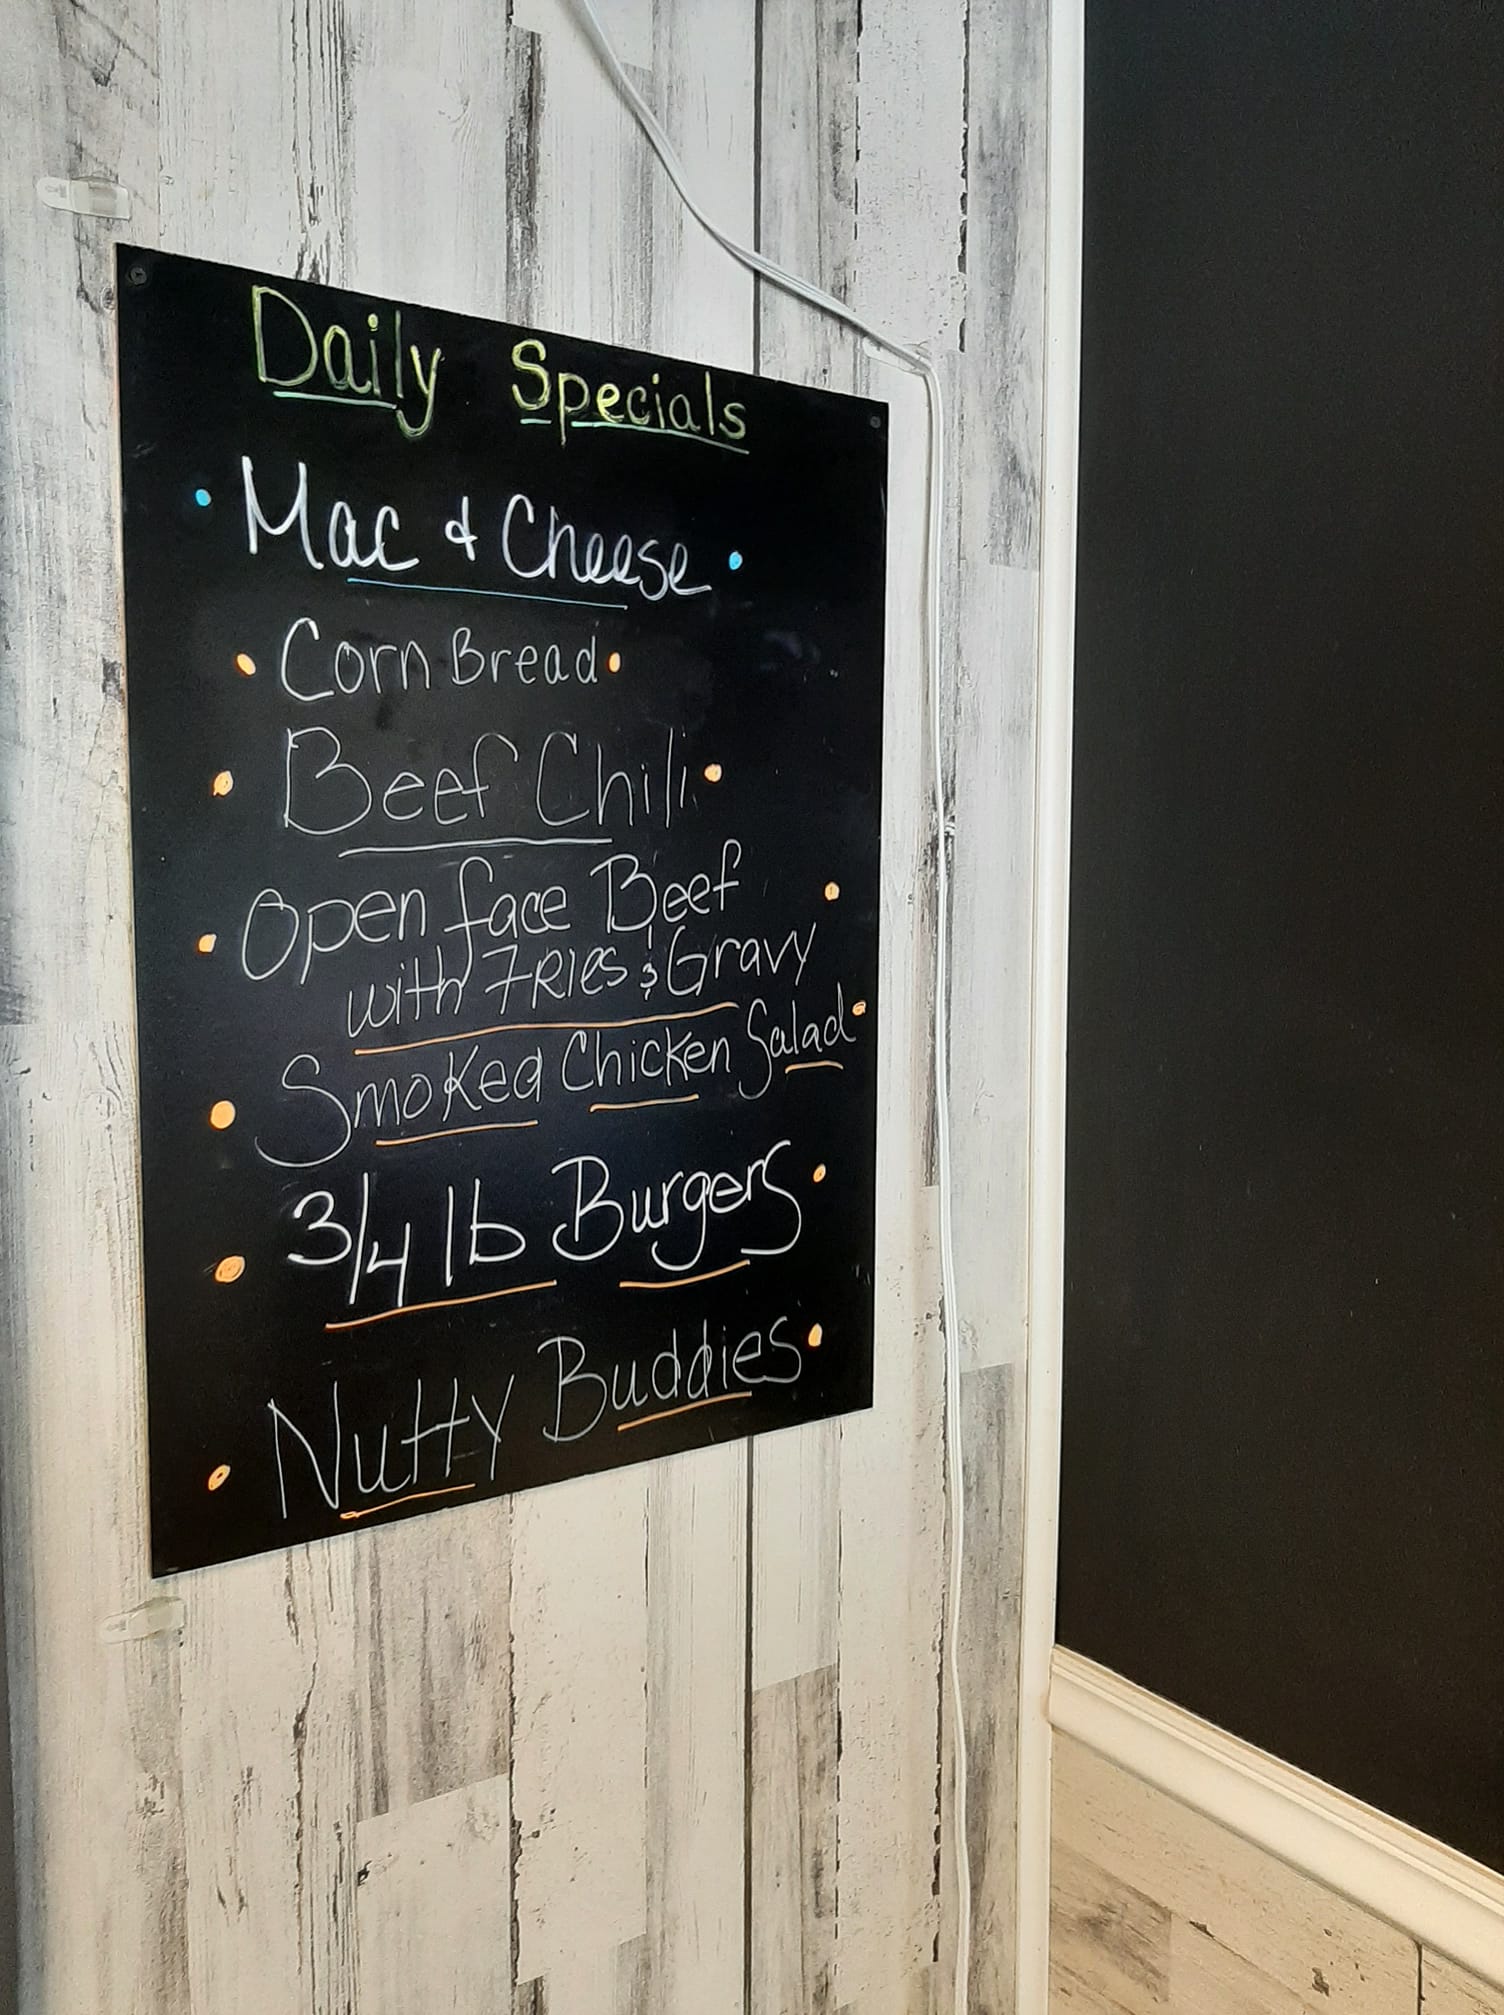 Daily Specials
• Mac & Cheese •
• Corn Bread •
• Beef Chili •
• Open face Beef •
with Fries & Gravy
• Smoked Chicken Salad •
• 3/4 lb Burgers •
• Nutty Buddies •